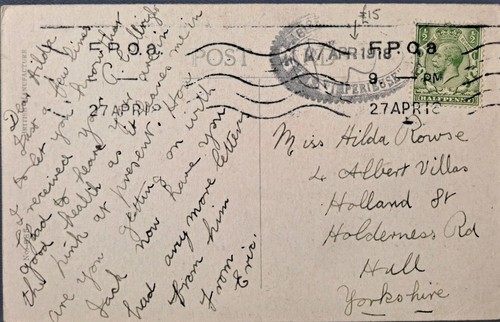 £15
F.P.O. a
27 APR 18
POST
27 APR 1918
F.P.O. a
9 PM
27 APR 18
HALFPENNY
Dear Hilda
Just a few lines
to let you know that
I received your P.C. allright
glad to hear your are in
good health as it leaves me in
the pink at present. How
are you getting on with
Jack now have you
had any more letters
from him
From
Eric.
Miss Hilda Rowse
4 Albert Villas
Holland St
Holderness Rd
Hull
Yorkshire